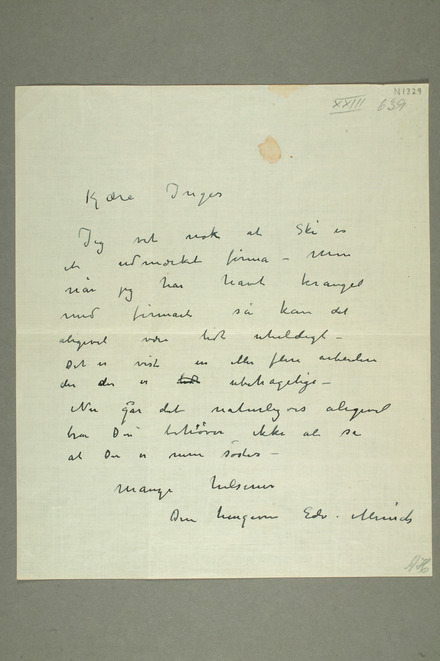 N1329
XXIII 639
Kjære Inger
Jeg vet nok at Ski er
et udmærket firma – men
når jeg har havt krangel
med firmaet så kan det
aligevel være lidt uheldigt –
Det er vist en eller flere arbeidere
der der er ubehagelige –
Nu går det naturligvis aligevel
bra Du behöver ikke at se
at Du er min söster –
Mange hilsener
Din hengivne Edv. Munch